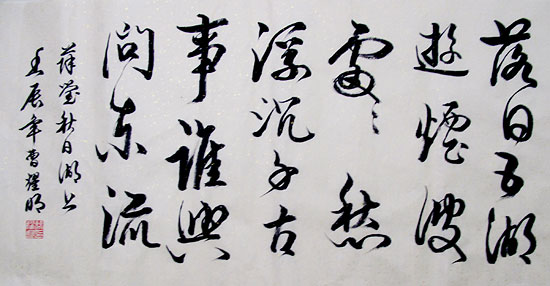 落日五湖
遊煙波
處々愁
浮沉千古
事誰與
問東流
薛瑩秋日湖上
壬辰年曹耀明